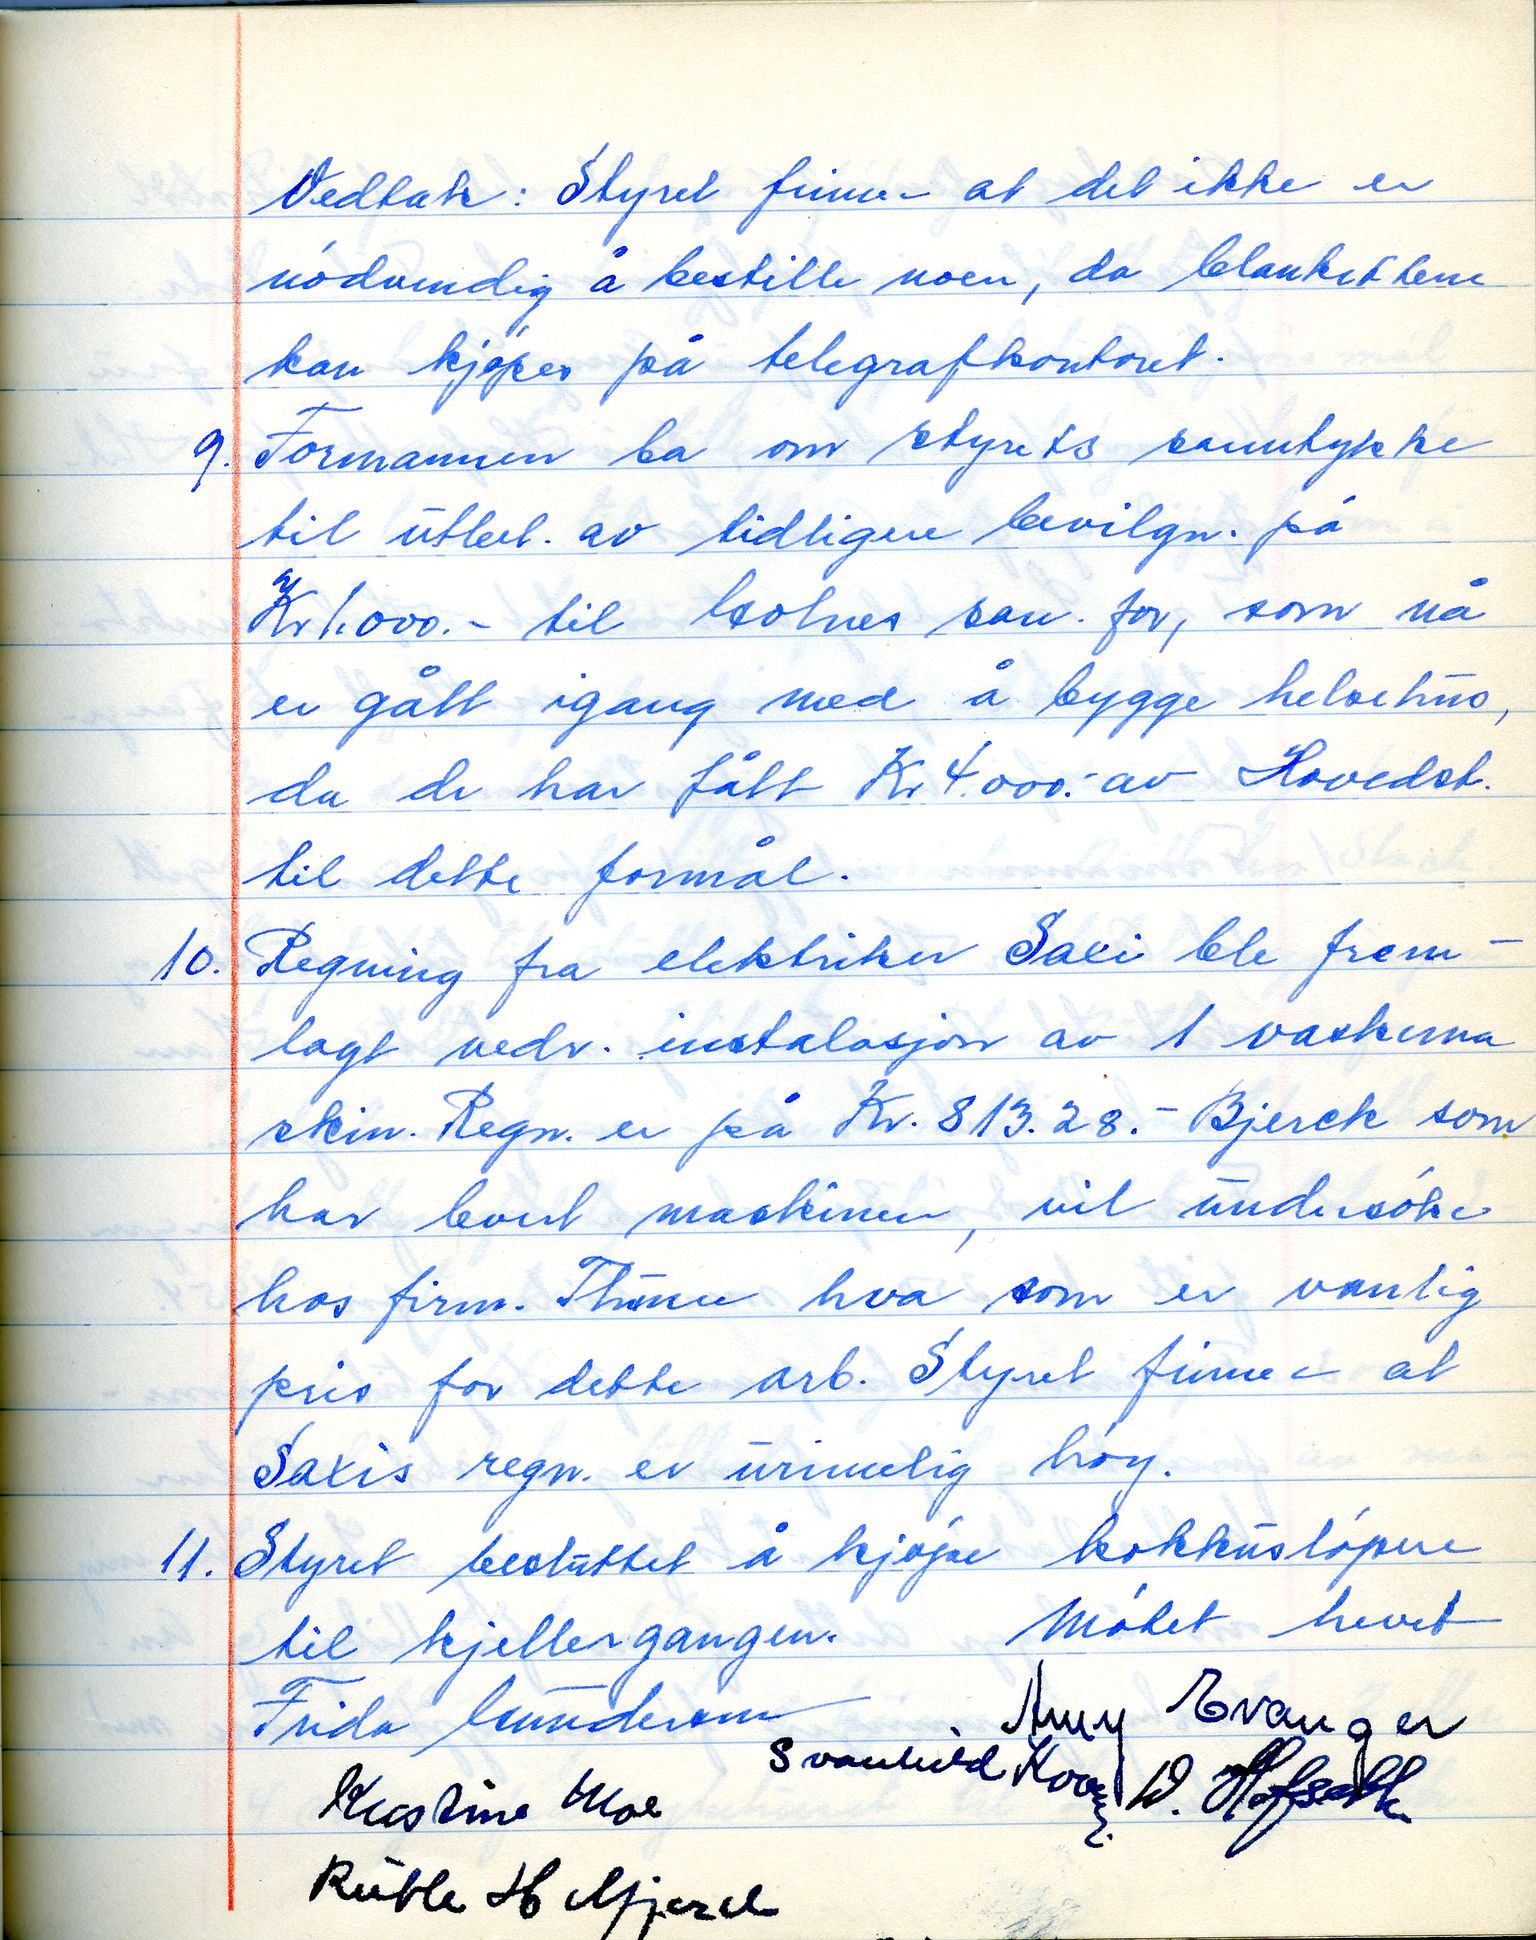 Vedtak: Styret finner at det ikke er
nódvendig å bestille noen, da blankettene
kan kjøpes på telegrafkontoret.
9. Formannen ba om styrets samtykke
til utbet. av tidligere bevilgn. på
Kr 1.000.- til san. for, som nå
er gått igang med å bygge helsehus,
da de har fått Kr 4.000.- av Hovedst.
til dette formål.
10. Regning fra elektriker Saxi ble frem-
lagt vedr. instalasjon av 1 vaskema
skin. Regn. er på Kr. 813.28.- Bjerck som
har levert maskinen, vil undersóke
hos firm. Thune hva som er vanlig
pris for dette arb. Styret finner at
Saxis regn. er urimelig hóy.
11. Styret besluttet å kjøpe kokkuslópere
til kjellergangen. Mótet hevet
Frida Gundersen Amy Evanger
Svanhild D. Hofseth
Kristine Moe
Ruth H